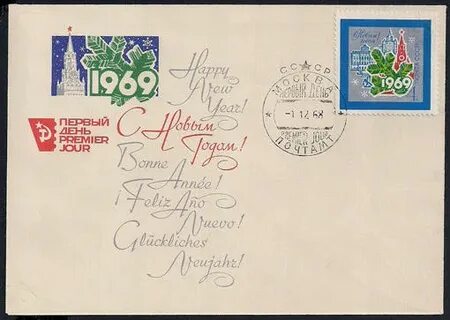 1969
ПЕРВЫЙ
ДЕНЬ
PREMIER
JOUR
Happy
New
Year!
С Новым
Годом!
Bonne
Année!
¡Feliz Año
Nuevo!
Glückliches
Neujahr!
СССР
МОСКВА
ПЕРВЫЙ ДЕНЬ
-1 12 68
PREMIER JOUR
ПОЧТАМТ
С Новым
годом!
1969